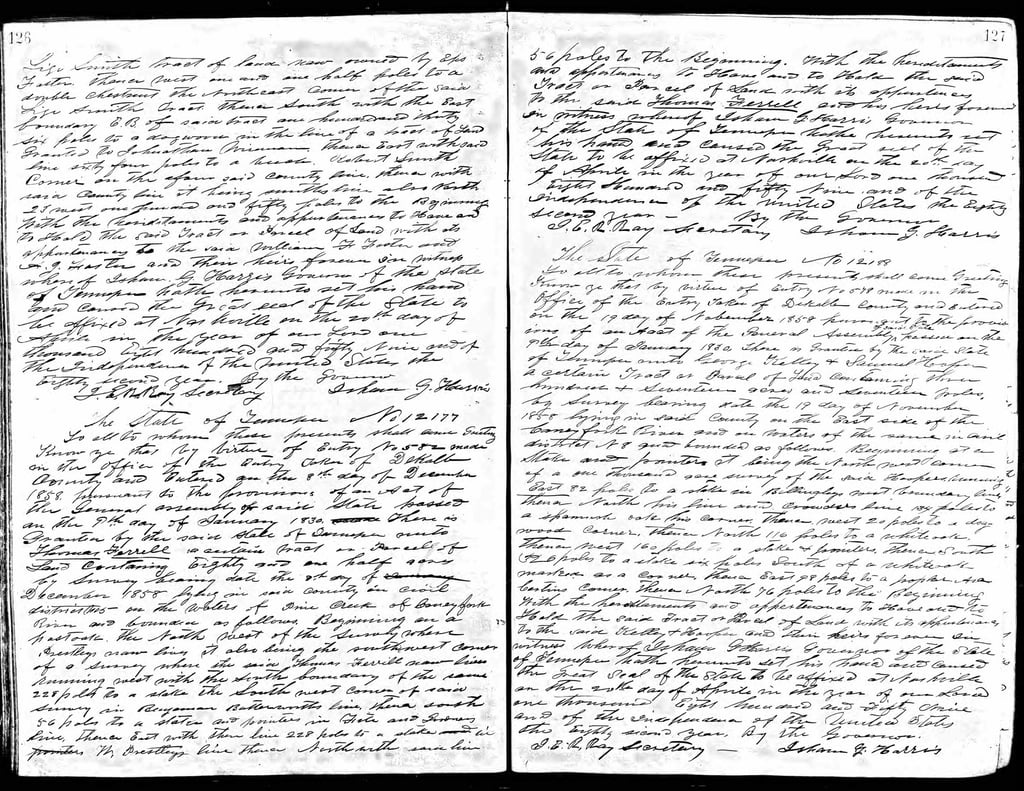 126
tract of land now owned by
Foster thence west one and one half poles to a
double chestnut the Northeast corner of the said
Smith tract thence South with the East
boundary of said tract one hundred and thirty
six poles to dogwood in the line of a tract of Land
Granted to thence East with said
line sixty four poles to a Robert Smith
Corner on the afore said county line thence with
said County line
25 west one and fifty poles to the Beginning
With the hereditaments and appurtenances to Have and
to Hold the said Tract or Parcel of Land with its
appurtenances to the said William Foster and
Foster and their heirs forever In witness
where of Isham G. Harris Governor of the State
of Tennessee hath hereunto set his hand
and caused the Great seal of the State to
be affixed at Nashville on the 20th day of
Aprile in the year of our Lord one
thousand Eight hundred and fifty Nine and of
the Independence of the United States the
Eighty second year By the Governor
J. E. R. Ray Secretary Isham G. Harris
The State of Tennessee No 12177
To all to whom these presents shall come Greeting
Know ye that by virtue of Entry No made
in the office of the Entry Taker of DeKalb
County and Entered on the 8th day of December
1858 pursuant to the provisions of an Act of
the General assembly of said State passed
on the 9th day of January 1830 There is
Granted by the said State of Tennessee unto
Thomas Ferrell a certain tract or Parcel of
Land Containing Eighty and one half acres
by Survey bearing date the day of
December 1858 lying in said county in civil
district on the waters of Pine Creek of Caney fork
River and bounded as follows. Beginning on a
post oak the North west of the Survey where
Brettley now lives it also being the southwest corner
of a survey where the said Thomas Ferrill now lives
running west with the South boundary of the same
228 poles to a stake the South west corner of said
survey in Benjaman line, thence south
56 poles to a stake and pointers in and
line, thence East with their line 228 poles to a stake and
pointers in Brettleys line thence North with said line
127
56 poles to the Beginning. With the hereditaments
and appurtenances to Have and to Hold the said
Tract or Parcel of Land with its appurtenances
to the said Thomas Ferrell and his heirs forever
In witness whereof Isham G. Harris Governor
of the State of Tennessee hathe hereunto set
his hand and caused the Great seal of the
State to be affixed at Nashville on the 20th day
of Aprile in the year of our Lord one thousand
Eight Hundred and fifty Nine and of the
Independence of the United States the Eighty
second year — By the Governor
J. E. R. Ray Secretary Isham G. Harris
The State of Tennessee No 12188
To all to whom these presents shall come Greeting
Know ye that by virtue of Entry No made in the
Office of the Entry Taker of DeKalb County and Entered
on the 19 day of November 1858 pursuant to the provis
ions of an Act of the General Assembly passed on the
9th day of January 1830 There is Granted by the said State
of Tennessee unto George Kelley & Samuel Hooper
a certain Tract or Parcel of Land Containing three
hundred & Seventeen acres and seventeen poles,
by Survey bearing date the 19 day of November
1858 lying in said County on the East side of the
Caneyfork River and waters of the same in civil
district No 8 and bounded as follows. Beginning at a
Stake and pointers it being the North west corner
of a one thousand acre survey of the said Hoopers running
East 82 poles to a stake in Billingsleys west boundary line
thence North his line and Crowders line 184 poles to
a spanish oak his corner, thence west 20 poles to a dog
wood corner, thence North 110 poles to a white oak,
thence West 160 poles to a stake & pointers, thence South
poles to a stake six poles South of a white oak
marked as a corner, thence East 98 poles to a poplar
corner, thence North 76 poles to the Beginning
With the hereditaments and appurtenances to Have and to
Hold the said Tract or Parcel of Land with its appurtenances
to the said Kelley & Hooper and their heirs forever In
witness where of Isham G Harris Governor of the State
of Tennessee hath hereunto set his hand and caused
the Great Seal of the State to be affixed at Nashville
on the 20th day of Aprile in the year of our Lord
one thousand Eight hundred and Fifty Nine
and of the Independence of the United States
the Eighty second year. By the Governor.
J. E. R. Ray Secretary — Isham G. Harris